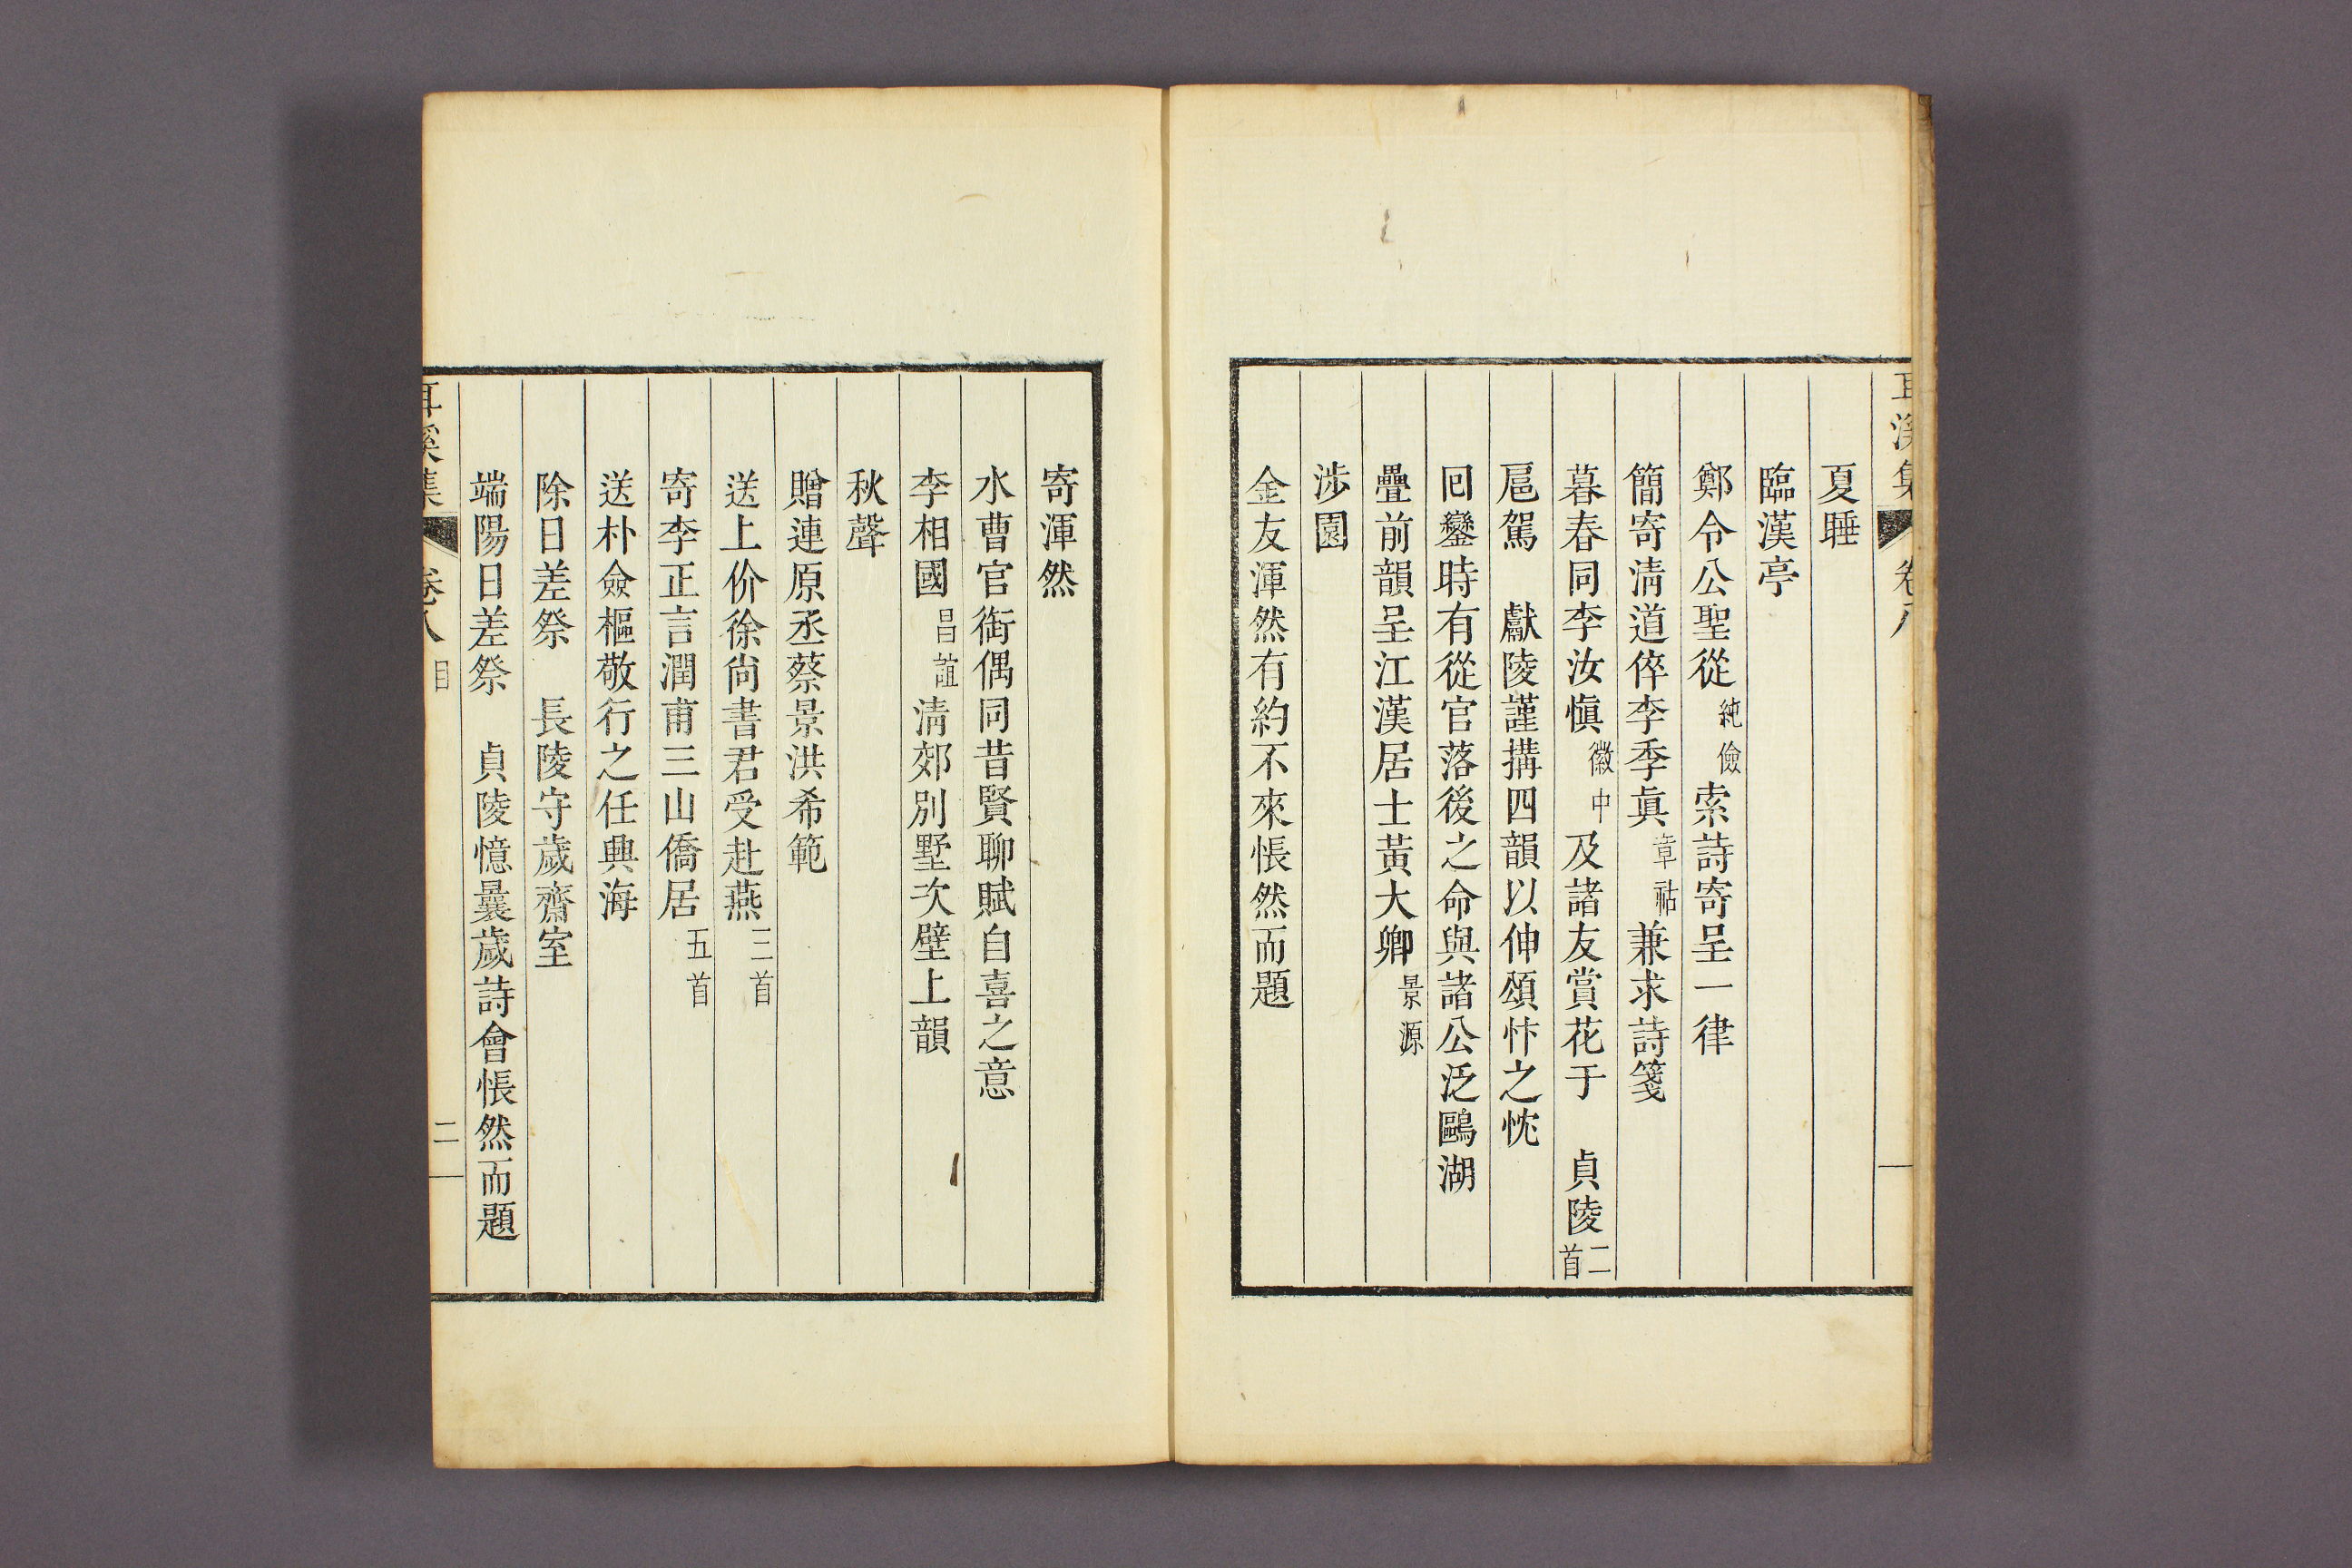 耳溪集 卷八
夏睡
臨漢亭
鄭令公聖從純儉索詩寄呈一律
簡寄淸道倅李季眞章祜兼求詩箋
暮春同李汝愼徽中及諸友賞花于 貞陵二首
扈駕 獻陵謹搆四韻以伸頌忭之忱
回鑾時有從官落後之命與諸公泛鷗湖
疊前韻呈江漢居士黃大卿景源
涉園
金友渾然有約不來悵然而題
寄渾然
水曹官銜偶同昔賢聊賦自喜之意
李相國昌誼淸郊別墅次壁上韻
秋聲
贈連原丞蔡景洪希範
送上价徐尙書君受赴燕三首
寄李正言潤甫三山僑居五首
送朴僉樞敬行之任興海
除日差祭 長陵守歲齋室
端陽日差祭 貞陵憶曩歲詩會悵然而題
耳溪集 卷八 目 二